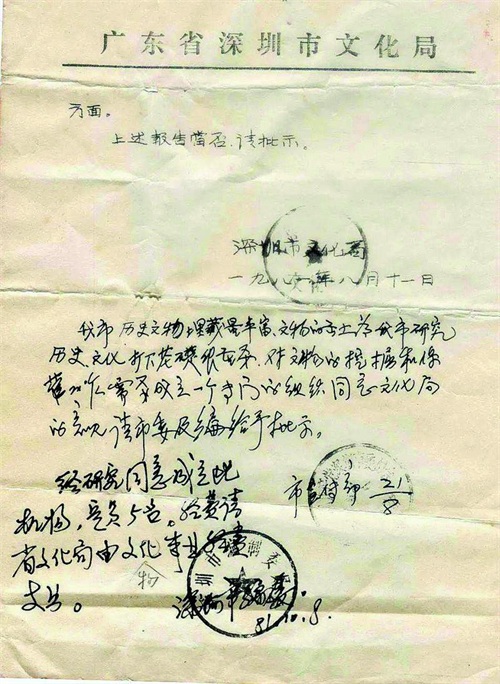 广东省深圳市文化局
方面。
上述报告当否,请批示。
深圳市文化局
一九八一年八月十一日
我市历史文物埋藏量丰富,文物的出土为我市研究
历史、文化打下基础很重要。对文物的挖掘和保
管工作需要成立一个专门的组织同意文化局
的意见请市委及编给予批示。
市宣传部 21/8
经研究同意成立此
机构,定员5名。经费请
省文化局由文化事业经费
支出。
物
深圳市编委
81.10.8.